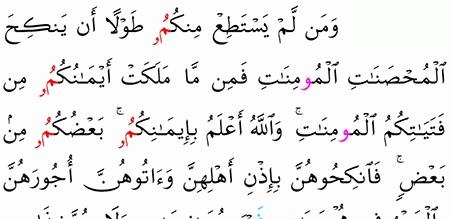 وَمَن لَّمْ يَسْتَطِعْ مِنكُمُۥ طَوْلًا أَن يَنكِحَ
اَلْمُحْصَنَٰتِ اِلْمُومِنَٰتِ فَمِن مَّا مَلَكَتَ اَيْمَٰنُكُمُۥ مِن
فَتَيَٰتِكُمُ اُلْمُومِنَٰتِۚ وَاللَّهُ أَعْلَمُ بِإِيمَٰنِكُمُۥۚ بَعْضُكُمُۥ مِنۢ
بَعْضٖۚ فَانكِحُوهُنَّ بِإِذْنِ أَهْلِهِنَّ وَءَاتُوهُنَّ أُجُورَهُنَّ